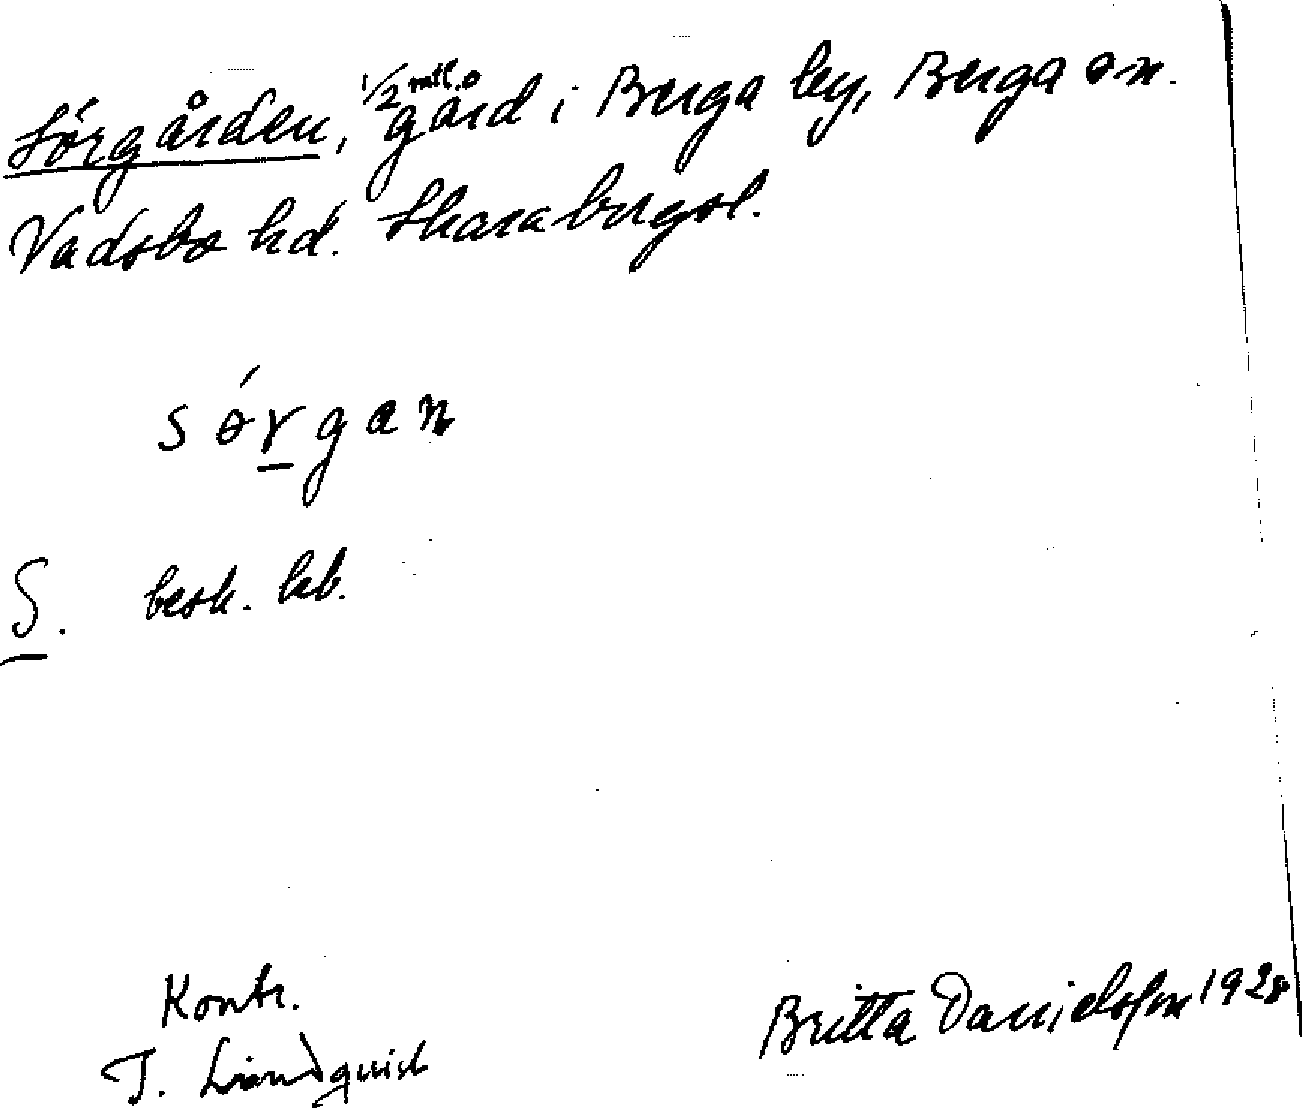 Sörgården, 1/2 mtl. gård i Berga by, Berga sn.
Vadsbo hd. Skarabergsl.
sǿrgan
S. besk. kb.
Kontr.
T. Lindquist
Britta Danielsson 1928